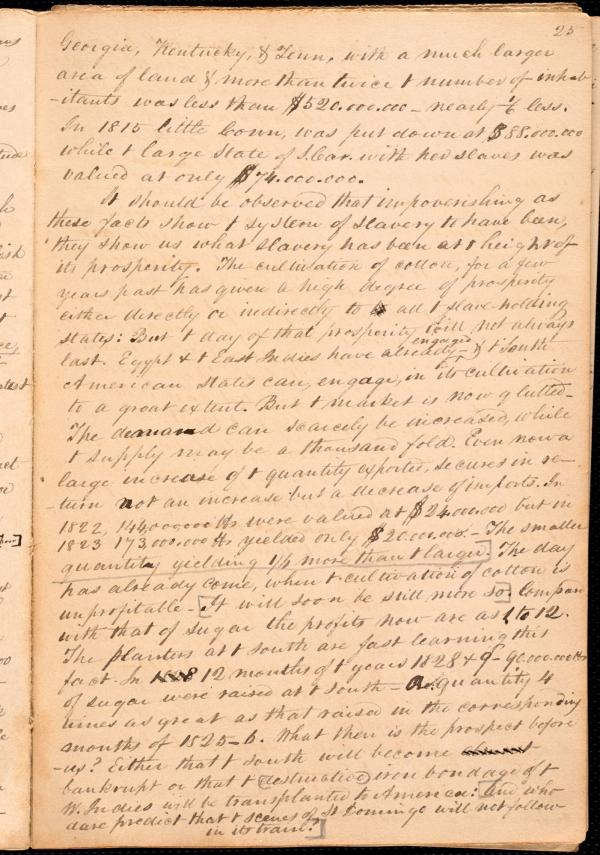 25
Georgia, Kentucky, & Tenn, with a much larger
area of land & more than twice t number of inhab-
-itants was less than $520.000.000 - nearly 1/6 less.
In 1815 little Conn, was put down at $88.000.000
while t large State of S. Car. with her slaves was
valued at only $74.000.000.
It should be observed that impoverishing as
these facts show t system of slavery to have been,
they show us what slavery has been at t height of
its prosperity. The cultivation of cotton, for a few
years past has given a high degree of prosperity
either directly or indirectly to all t slave-holding
states: But t day of that prosperity will not always
engaged
last. Egypt & t East Indies have already - & t South
American states can, engage, in its cultivation
to a great extent. But t market is now glutted-
The demand can scarcely be increased, while
t supply may be a thousand fold. Even now a
large increase of t quantity exported, secures in re-
-turn not an increase but a decrease of imports. In
1822, 144,000000 lbs were valued at $24.000000 but in
1823 173,000.000 lbs yielded only $20.000.000. - The smaller
quantity yielding 1/6 more than t larger. The day
has already come, when t cultivation of cotton is
unprofitable - [It will soon be still more so.] Compare
with that of sugar the profits now are as 1 to 12.
The planters at t south are fast learning this
fact. In 12 months of t years 1828 & 9 - 90.000.000 lbs
of sugar were raised at t south - A quantity 4
times as great as that raised in the corresponding
months of 1825-6. What then is the prospect before
-us? Either that t south will become
bankrupt or that t destructive iron bondage of t
W. Indies will be transplanted to America: [and who
dare predict that t scenes of St Domingo will not follow
in its train?]